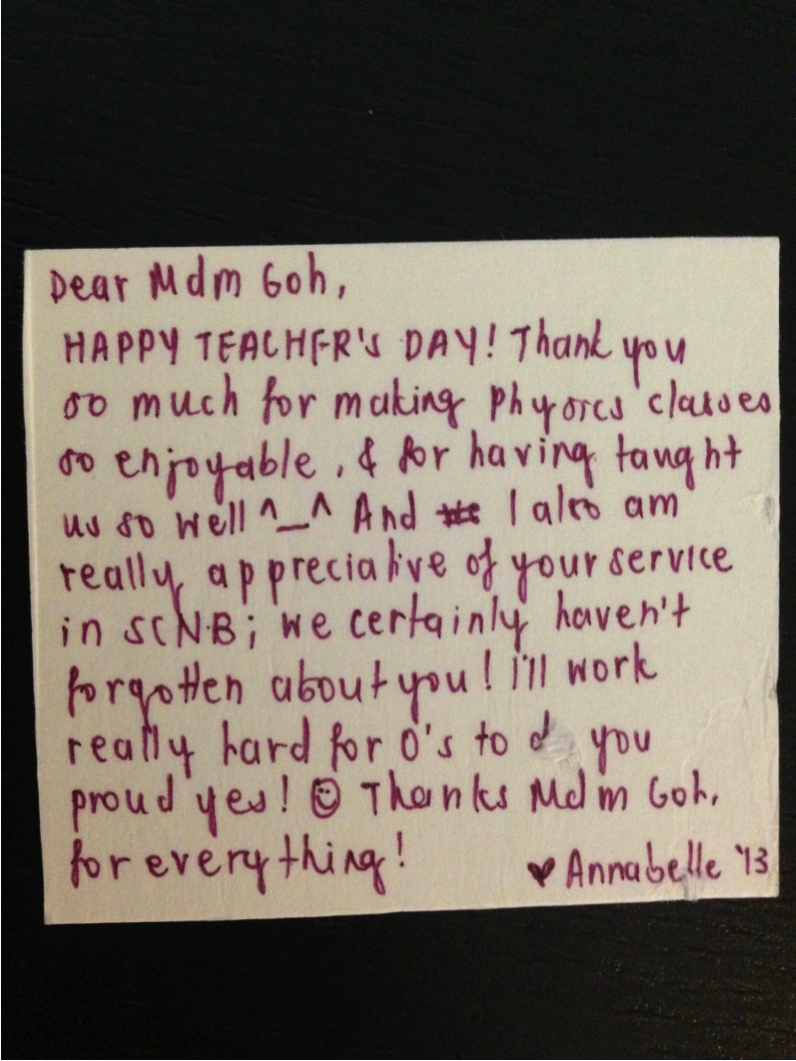 Dear Mdm Goh,
HAPPY TEACHER'S DAY! Thank you
so much for making physics classes
so enjoyable, & for having taught
us so well ^_^ And I also am
really appreciative of your service
in SCNB; we certainly haven't
forgotten about you! I'll work
really hard for O's to d you
proud yes! ☺ Thanks Mdm Goh,
for everything!
♥ Annabelle '13